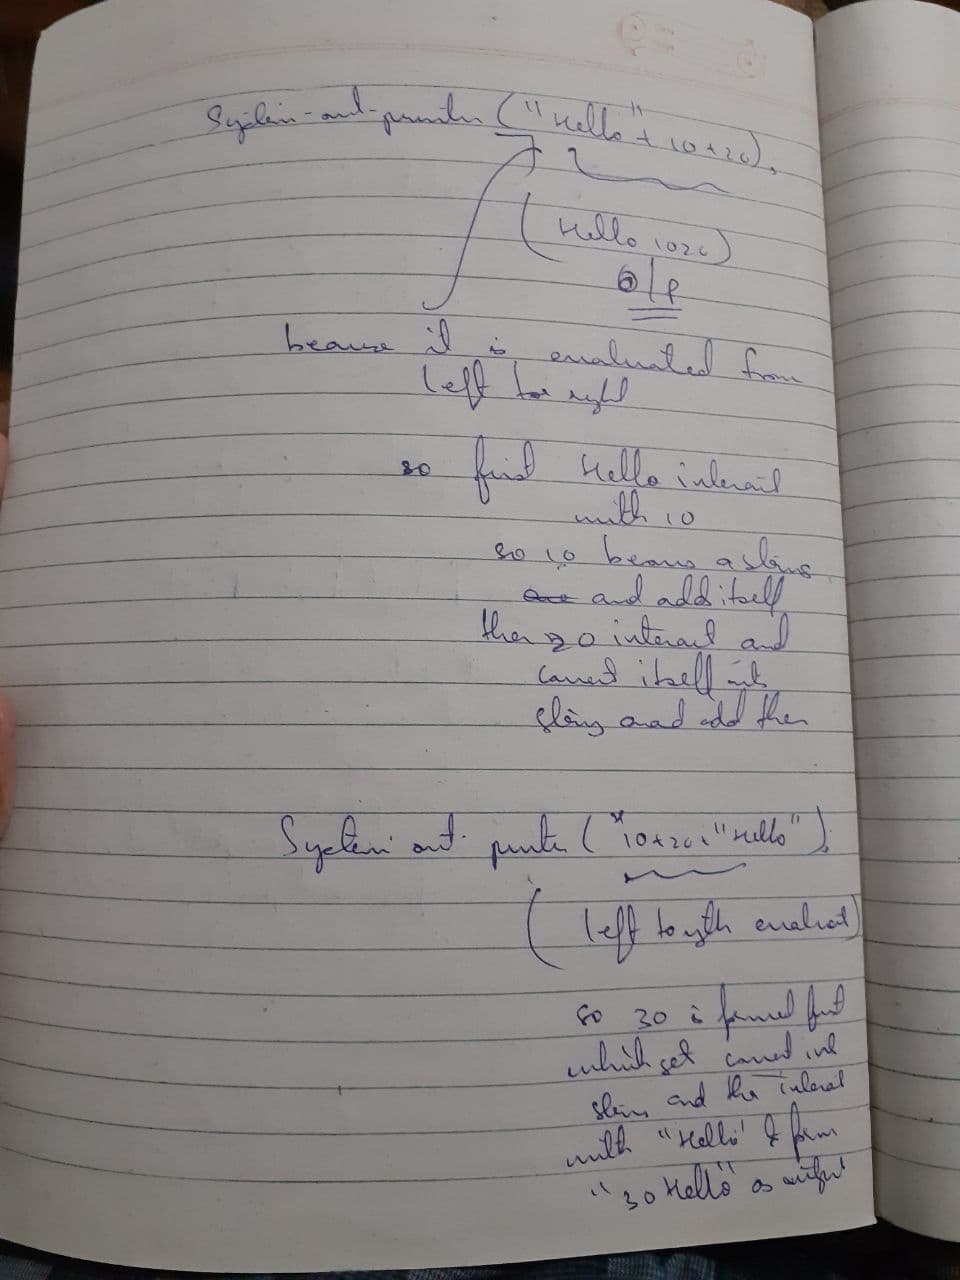 System.out.println ("Hello"+ 10+20);
(Hello 1020)
O/P
because it is evaluated from
left to right
so first Hello interact
with 10
so 10 becomes a string
and add itself
then 20 interact and
convert itself into
string and add then
System out. println ("10+20+"Hello");
(left to right evaluat)
so 30 is formed first
which get convert into
string and the interact
with "Hello" & form
"30 Hello" as output